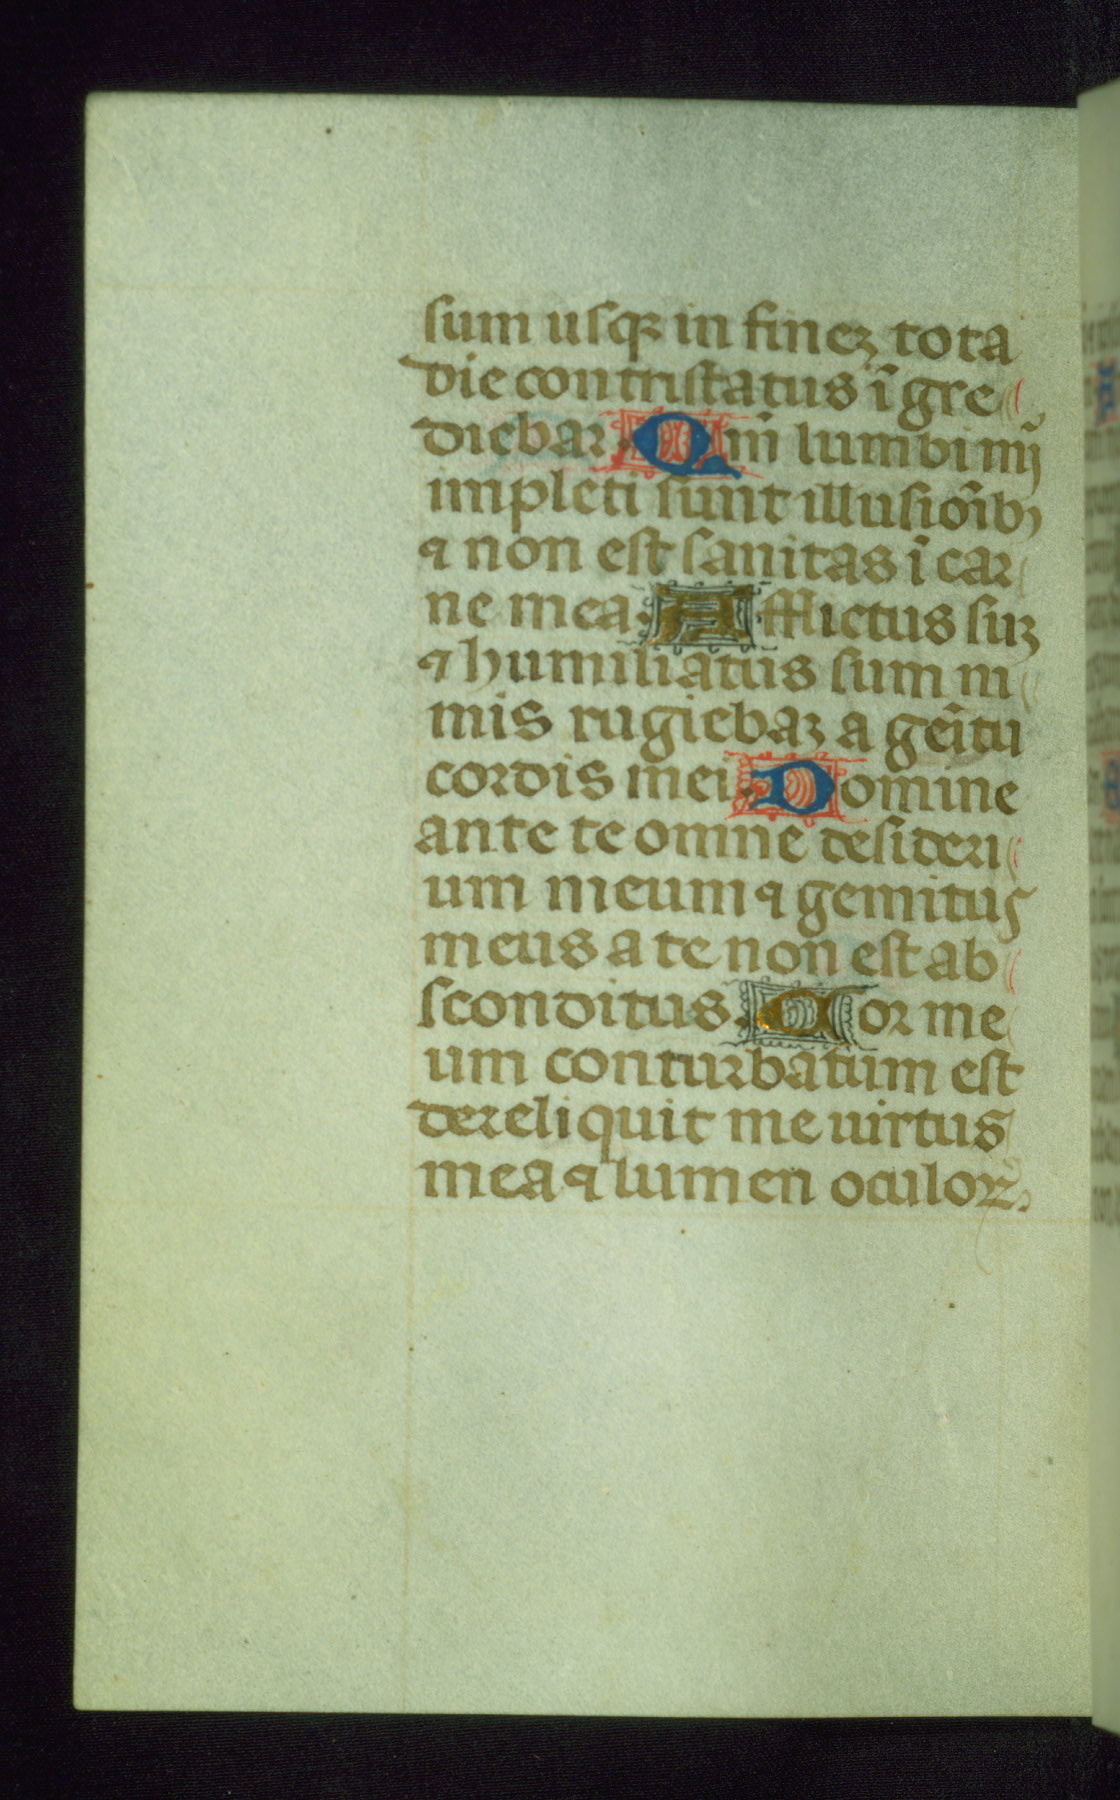 sum usqꝫ in fineꝫ tota
die contristatus ī gre
diebar. Qm̄ lumbi mij̄
impleti sunt illusiōibꝫ
⁊ non est sanitas ī car
ne mea. Afflictus suꝫ
⁊ humiliatus sum ni
mis rugiebaꝫ a gēitu
cordis mei. Domine
ante te omne desideri
um meum ⁊ gemitus
meus a te non est ab
sconditus. Cor me
um conturbatum est
dereliquit me uirtus
mea ⁊ lumen oculoꝝ.